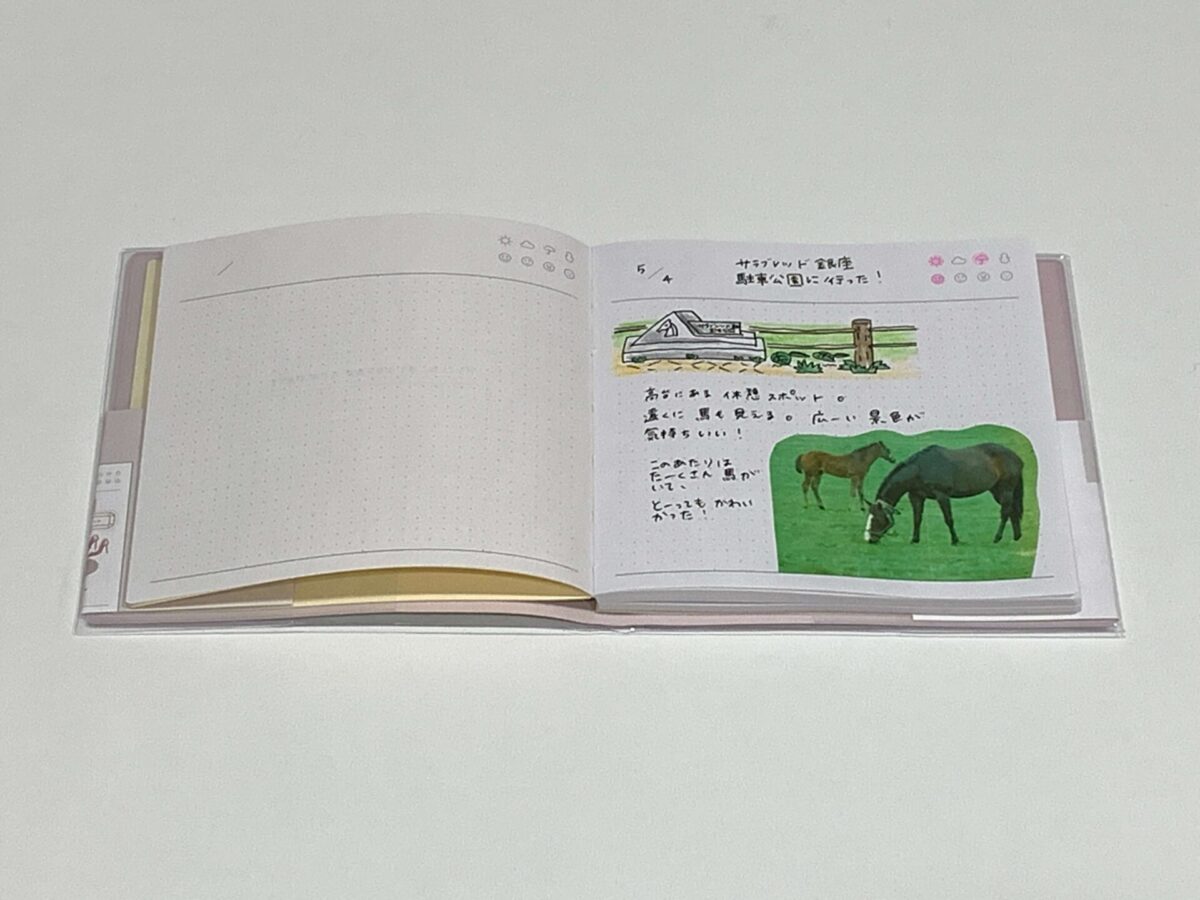 5/4
サラブレッド銀座
駐車公園に行った!
高台にある休憩スポット。
遠くに馬も見える。広ーい景色が
気持ちいい!
このあたりは
たーくさん馬が
いて、
とーってもかわい
かった!